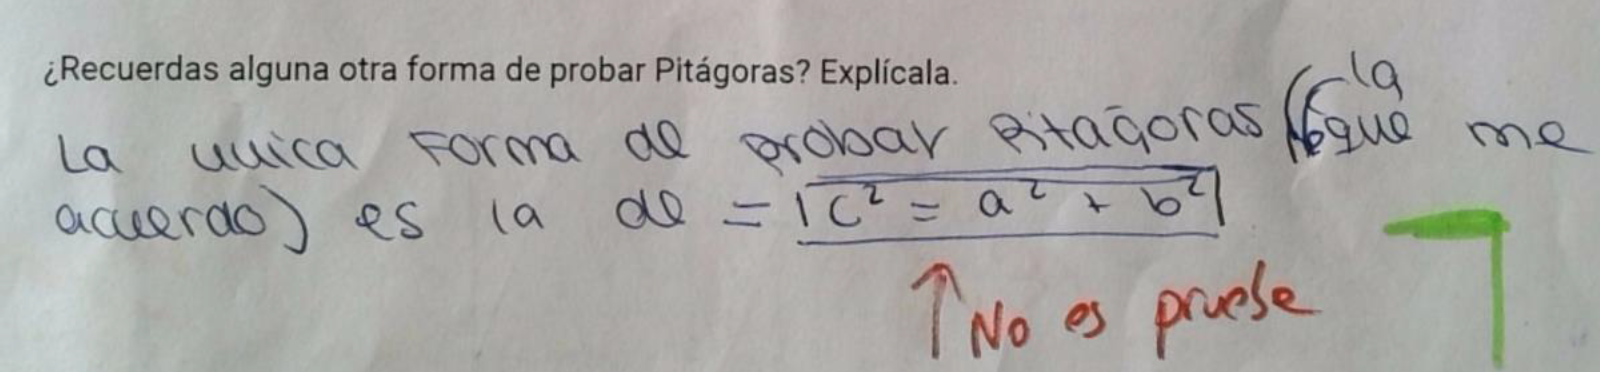 ¿Recuerdas alguna otra forma de probar Pitágoras? Explícala.
La unica Forma de probar Pitagoras (la que me
acuerdo) es la de = c² = a² + b²
↑ No es prueba